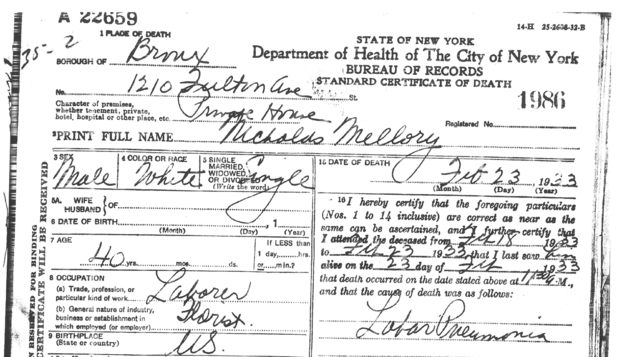 A 22659
14-H 25-2608-32-B
35-2
1 PLACE OF DEATH
STATE OF NEW YORK
BOROUGH OF Bronx
Department of Health of The City of New York
BUREAU OF RECORDS
No. 1210 Fulton Ave St.
STANDARD CERTIFICATE OF DEATH
Character of premises, whether tenement, private, hotel, hospital or other place, etc. Private House
1986
Registered No.
2 PRINT FULL NAME Nicholas Mellory
3 SEX Male
4 COLOR OR RACE White
5 SINGLE, MARRIED, WIDOWED, OR DIVORCED (Write the word) Single
15 DATE OF DEATH Feb 23 1933
(Month) (Day) (Year)
5A WIFE HUSBAND } OF
6 DATE OF BIRTH
(Month) (Day) (Year)
7 AGE 40 yrs. mos. ds.
If LESS than 1 day, hrs. or min.?
8 OCCUPATION
(a) Trade, profession, or particular kind of work Laborer
(b) General nature of industry, business or establishment in which employed (or employer) Florist
9 BIRTHPLACE (State or country) U.S.
16 I hereby certify that the foregoing particulars
(Nos. 1 to 14 inclusive) are correct as near as the
same can be ascertained, and I further certify that
I attended the deceased from Feb 18 1933
to Feb 23 1933 that I last saw him
alive on the 23 day of Feb 1933
that death occurred on the date stated above at M.,
and that the cause of death was as follows:
Lobar Pneumonia
RESERVED FOR BINDING
CERTIFICATE WILL BE RECEIVED